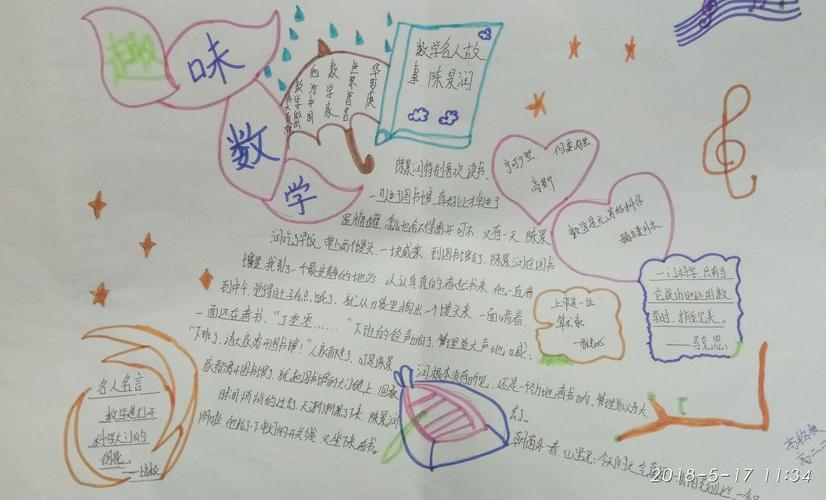 趣味
数学
数学名人故
事 陈景润
华罗庚
世界著名
数学家
他为中国
宁可少些
但要好些
高斯
数学是无穷的科学
赫尔曼外尔
陈景润特别喜欢读书,
一到了图书馆,真好比掉进了
蜜糖罐,怎么也舍不得离开可不,又有一天,陈景
润吃了早饭,带上两个馒头,一块咸菜,到图书馆去了,陈景润在图书
馆里,找到了一个最安静的地方,认认真真的看起书来,他一直看
到中午,觉得肚子有点饿了,就从口袋里掏出一个馒头来,一面啃着,
一面还在看书,
下班的铃声响了,管理员大声地喊:
"下班了,请大家离开图书馆!"人家都走了,可是陈景
润根本没有听见,还是一个劲地看书呐,管理员以为大
家都离开图书馆了,就把图书馆的大门锁上,回家
去了。
时间悄悄的过去,天渐渐黑了下来,陈景润
朝窗外一看,心里说:今天的天
上帝是一位
算术家
一门科学,只有当
它成功地运用数
学时,才能完美。
——马克思
名人名言
数学是打开
科学大门的
钥匙。
——培根
2018-5-17 11:34